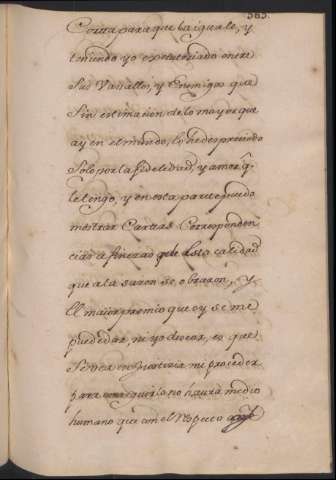 385.
Corra para que la iguale, y
teniendo yo experimentado entre
sus Vasallos, y Enemigos que
sin estimacion de lo mayor que
ay en el mundo, lo he despreciado
solo por la fidelidad, y amor q.
le tengo, y en esta parte puedo
mostrar Cartas Corresponden
cias a finezas que de esta calidad
que a la sazon se obraron, y
El maior premio que oy se me
puede dar, ni yo dessear, es que
se vea en Justicia mi proceder
para conseguirlo no haura medio
humano que con el Respeto